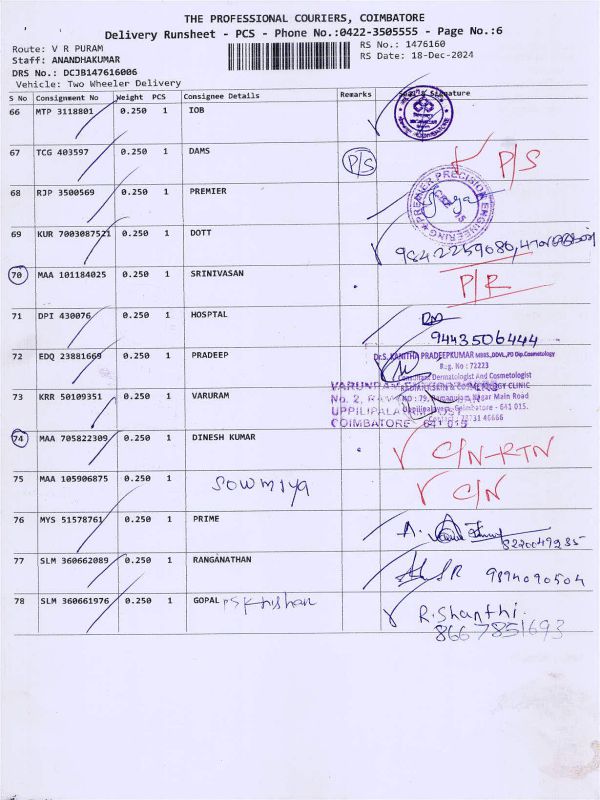 THE PROFESSIONAL COURIERS, COIMBATORE
Delivery Runsheet - PCS - Phone No.:0422-3505555 - Page No.:6
Route: V R PURAM
RS No.: 1476160
Staff: ANANDHAKUMAR
RS Date: 18-Dec-2024
DRS No.: DCJB147616006
Vehicle: Two Wheeler Delivery
S No Consignment No Weight PCS Consignee Details Remarks Signature
66 MTP 3118801 0.250 1 IOB
67 TCG 403597 0.250 1 DAMS P/S P/S
68 RJP 3500569 0.250 1 PREMIER
PREMIER PRECISION ENGINEERING
69 KUR 7003087521 0.250 1 DOTT
9842259080,
70 MAA 101184025 0.250 1 SRINIVASAN P/R
71 DPI 430076 0.250 1 HOSPTAL
9443506444
72 EDQ 23881669 0.250 1 PRADEEP
Dr.S. KANITHA PRADEEPKUMAR MBBS.,DDVL.,PD Dip.Cosmetology
Reg. No : 72223
Consultant Dermatologist And Cosmetologist
SKIN & COSMETOLOGY CLINIC
73 KRR 50109351 0.250 1 VARURAM
NO : 79, Ramanujam Nagar Main Road
Uppilipalayam, Coimbatore - 641 015.
No. 2,
UPPILIPALA
COIMBATORE - 641 015
74 MAA 705822309 0.250 1 DINESH KUMAR C/N-RTN
75 MAA 105906875 0.250 1 SOWMIYA C/N
76 MYS 51578761 0.250 1 PRIME A.
8220049235
77 SLM 360662089 0.250 1 RANGANATHAN
9894090504
78 SLM 360661976 0.250 1 GOPAL PSKrishan R.Shanthi.
8667851693